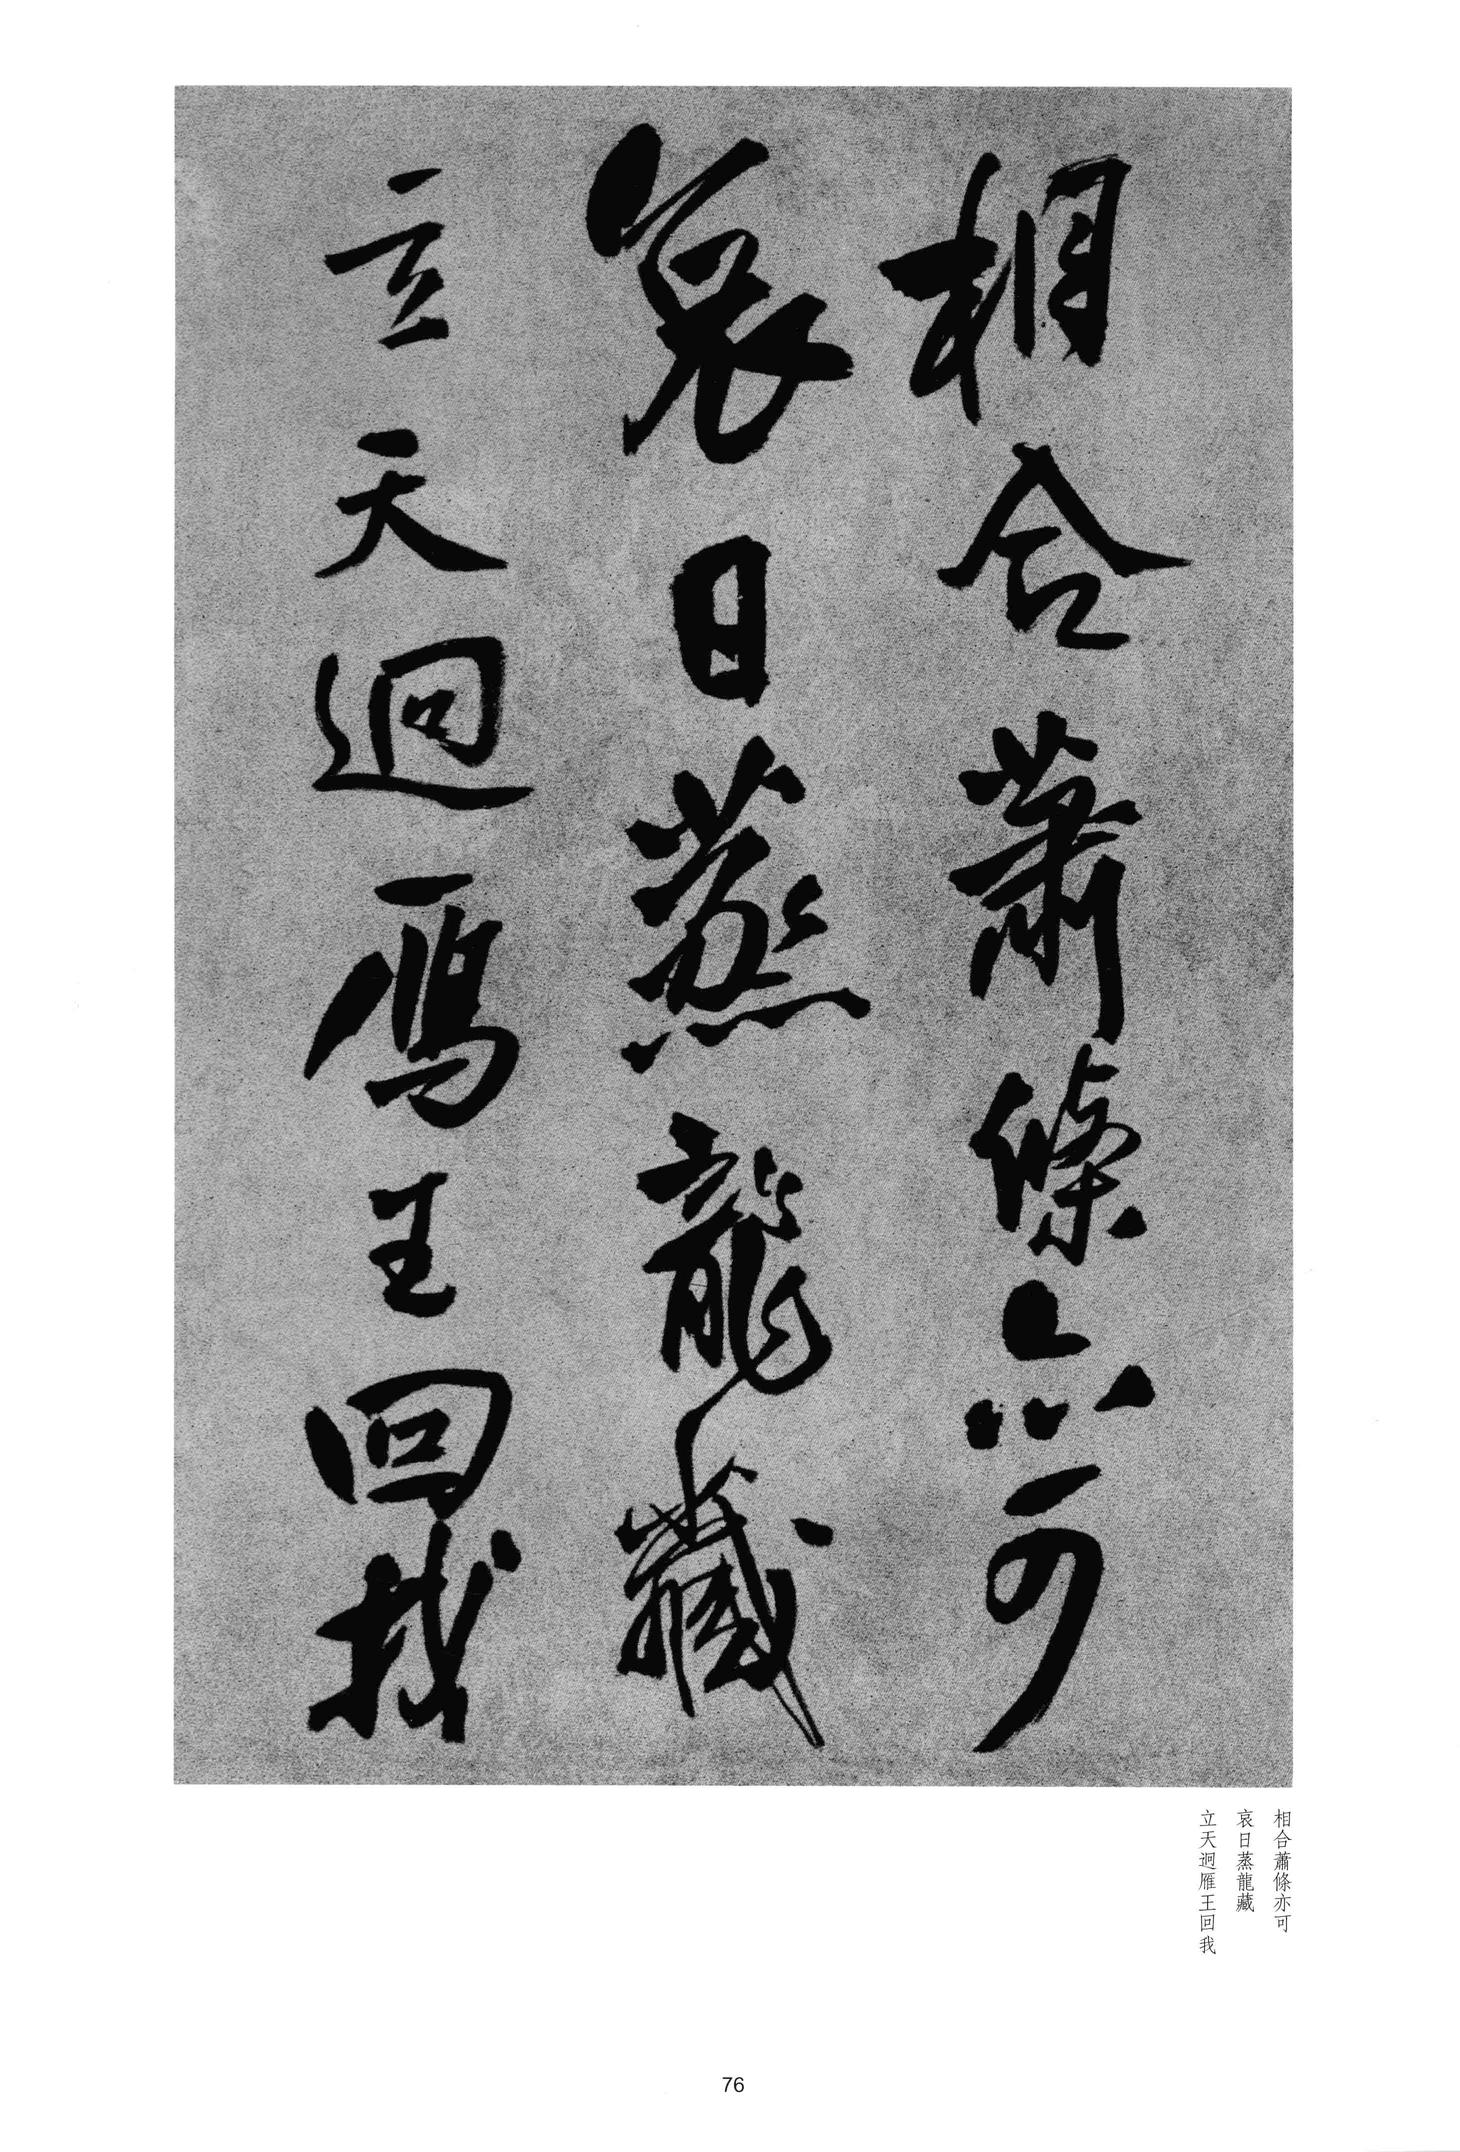 相合蕭條亦可
哀日蒸龍藏
立天迥雁王回我
相合蕭條亦可
哀日蒸龍藏
立天迥雁王回我
76